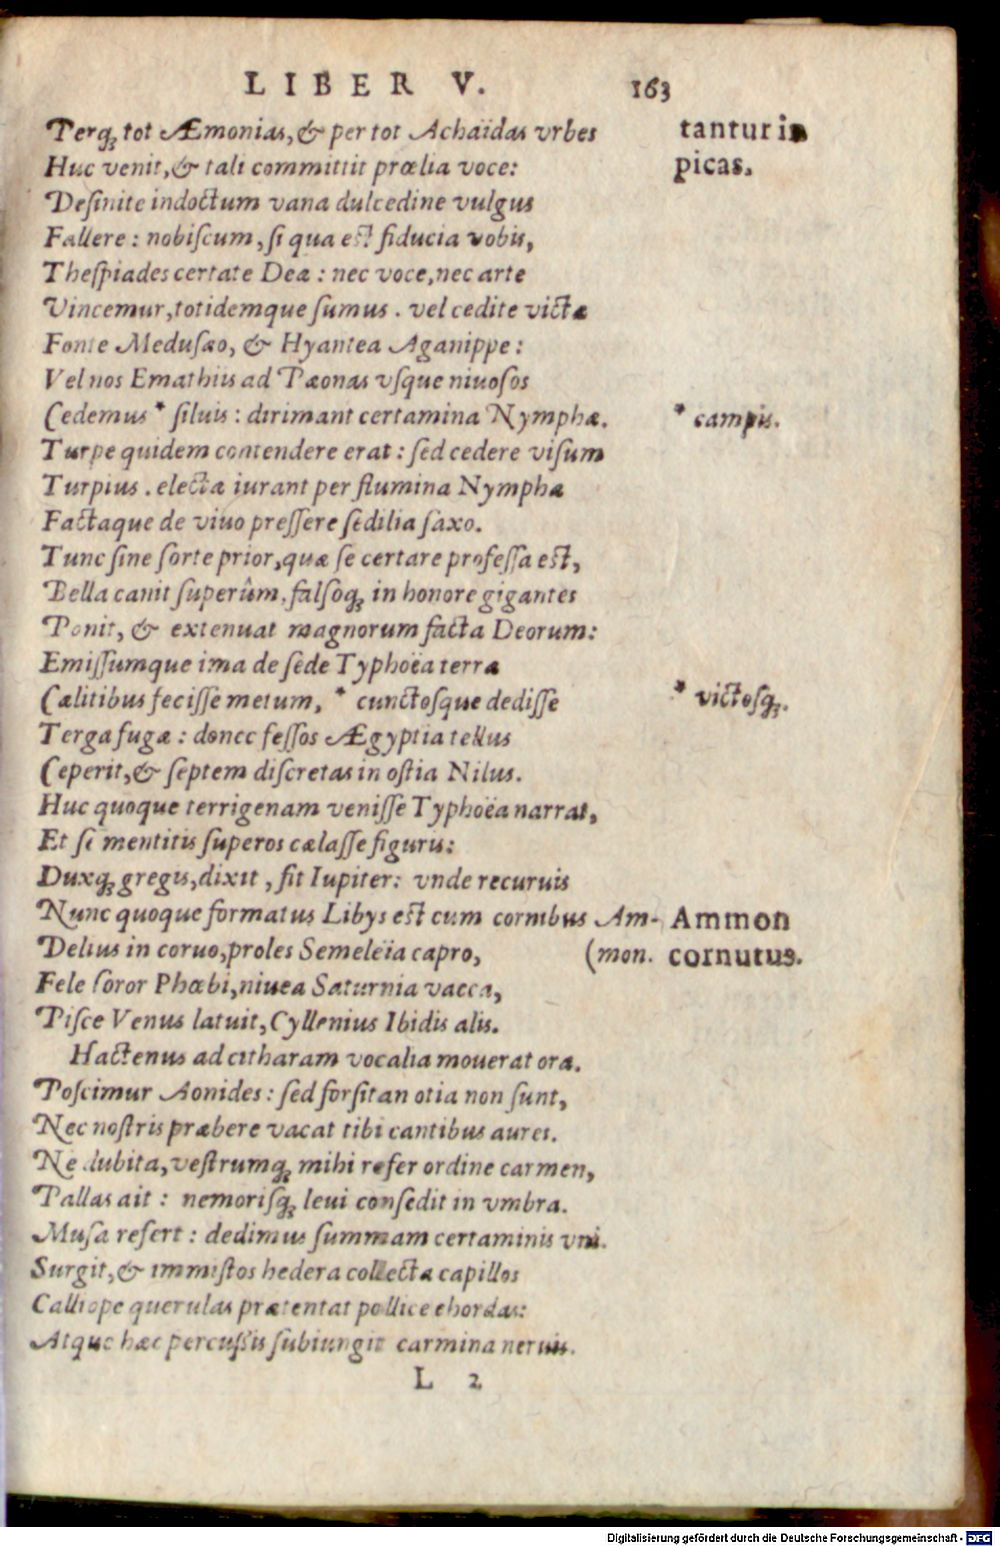 LIBER V. 163
Terq́; tot Æmonias, & per tot Achaïdas vrbes
tantur in
Huc venit, & tali committit prœlia voce:
picas.
Desinite indoctum vana dulcedine vulgus
Fallere: nobiscum, si qua est fiducia vobis,
Thespiades certate Deæ: nec voce, nec arte
Vincemur, totidemque sumus. vel cedite victæ
Fonte Medusæo, & Hyantea Aganippe:
Vel nos Emathiis ad Pæonas vsque niuosos
Cedemus * siluis: dirimant certamina Nymphæ.
* campis.
Turpe quidem contendere erat: sed cedere visum
Turpius. electæ iurant per flumina Nymphæ
Factaque de viuo pressere sedilia saxo.
Tunc sine sorte prior, quæ se certare professa est,
Bella canit superûm, falsoq́; in honore gigantes
Ponit, & extenuat magnorum facta Deorum:
Emissumque ima de sede Typhoëa terræ
Cælitibus fecisse metum, * cunctosque dedisse
* victosq́;.
Terga fugæ: donec fessos Ægyptia tellus
Ceperit, & septem discretas in ostia Nilus.
Huc quoque terrigenam venisse Typhoëa narrat,
Et se mentitis superos cælasse figuris:
Duxq́; gregis, dixit, fit Iupiter: vnde recuruis
Nunc quoque formatus Libys est cum cornibus Am-
Ammon
Delius in coruo, proles Semeleïa capro, (mon.
cornutus.
Fele soror Phœbi, niuea Saturnia vacca,
Pisce Venus latuit, Cyllenius Ibidis alis.
Hactenus ad citharam vocalia mouerat ora.
Poscimur Aonides: sed forsitan otia non sunt,
Nec nostris præbere vacat tibi cantibus aures.
Ne dubita, vestrumq́; mihi refer ordine carmen,
Pallas ait: nemorisq́; leui consedit in vmbra.
Musa refert: dedimus summam certaminis vni.
Surgit, & immistos hedera collecta capillos
Calliope querulas prætentat pollice chordas:
Atque hæc percussis subiungit carmina neruis.
L 2
Digitalisierung gefördert durch die Deutsche Forschungsgemeinschaft - DFG